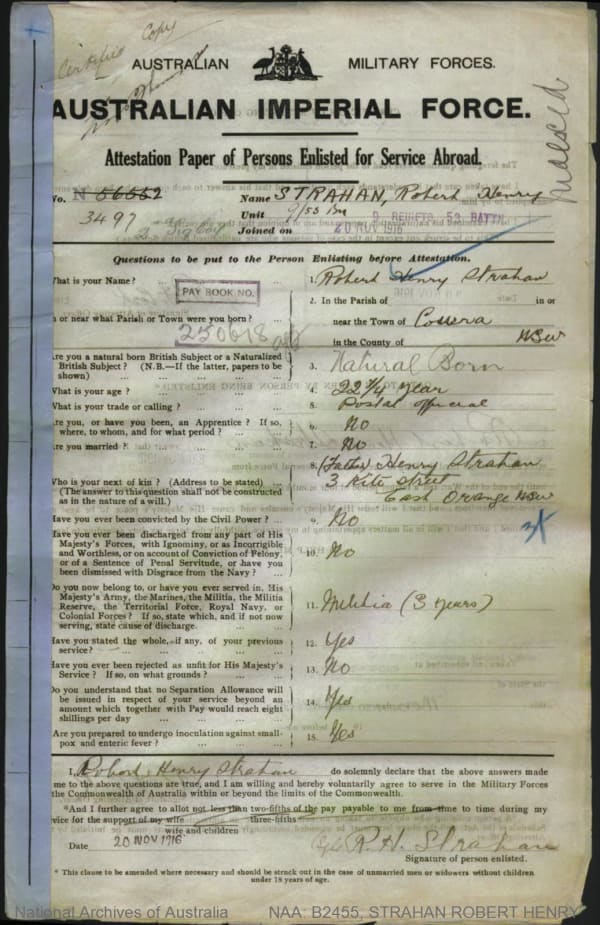 Certified Copy
AUSTRALIAN MILITARY FORCES.
AUSTRALIAN IMPERIAL FORCE.
Indexed
Attestation Paper of Persons Enlisted for Service Abroad.
No. N 56552 Name STRAHAN, Robert Henry
3497 Unit 9/53 Bn 9 REINFTS. 53 BATTN.
Joined on 20 NOV 1916
Questions to be put to the Person Enlisting before Attestation.
What is your Name? ... 1. Robert Henry Strahan
PAY BOOK NO.
250618
In or near what Parish or Town were you born? ... 2. In the Parish of in or
near the Town of Cowra
in the County of NSW
Are you a natural born British Subject or a Naturalized
British Subject? (N.B.—If the latter, papers to be
shown) ... 3. Natural Born
What is your age? ... 4. 22 1/4 year
What is your trade or calling? ... 5. Postal official
Are you, or have you been, an Apprentice? If so,
where, to whom, and for what period? ... 6. No
Are you married? ... 7. No
Who is your next of kin? (Address to be stated) ... 8. (Father) Henry Strahan
(The answer to this question shall not be constructed 3 Kite Street
as in the nature of a will.) East Orange NSW
Have you ever been convicted by the Civil Power? ... 9. No
Have you ever been discharged from any part of His
Majesty's Forces, with Ignominy, or as Incorrigible
and Worthless, or on account of Conviction of Felony,
or of a Sentence of Penal Servitude, or have you
been dismissed with Disgrace from the Navy? ... 10. No
Do you now belong to, or have you ever served in, His
Majesty's Army, the Marines, the Militia, the Militia
Reserve, the Territorial Force, Royal Navy, or
Colonial Forces? If so, state which, and if not now
serving, state cause of discharge. 11. Militia (3 years)
Have you stated the whole, if any, of your previous
service? ... 12. Yes
Have you ever been rejected as unfit for His Majesty's
Service? If so, on what grounds? ... 13. No
Do you understand that no Separation Allowance will
be issued in respect of your service beyond an
amount which together with Pay would reach eight
shillings per day ... 14. Yes
Are you prepared to undergo inoculation against small-
pox and enteric fever? ... 15. Yes
I, Robert Henry Strahan do solemnly declare that the above answers made
me to the above questions are true, and I am willing and hereby voluntarily agree to serve in the Military Forces
the Commonwealth of Australia within or beyond the limits of the Commonwealth.
*And I further agree to allot not less than two-fifths of the pay payable to me from time to time during my
vice for the support of my wife three-fifths
wife and children
Date 20 NOV 1916 R. H. Strahan
Signature of person enlisted.
* This clause to be amended where necessary and should be struck out in the case of unmarried men or widowers without children
under 18 years of age.
National Archives of Australia NAA: B2455, STRAHAN ROBERT HENRY